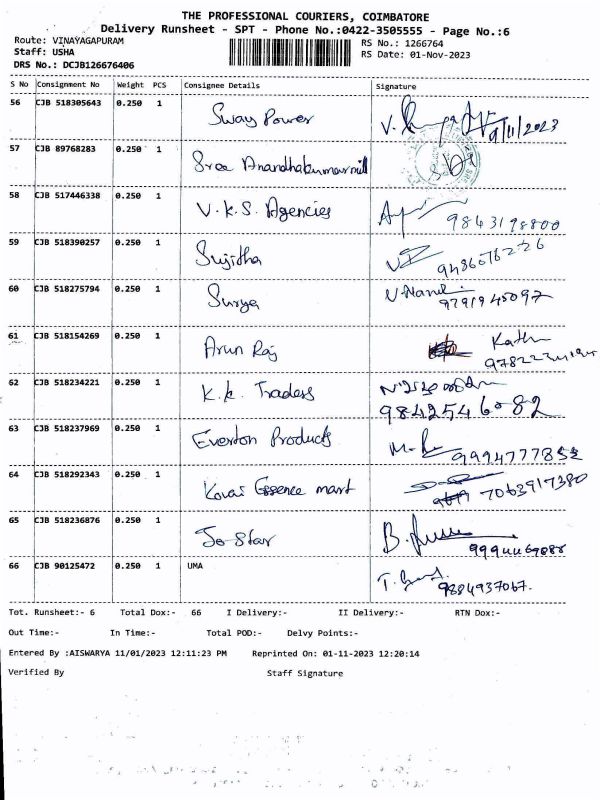 THE PROFESSIONAL COURIERS, COIMBATORE
Delivery Runsheet - SPT - Phone No.:0422-3505555 - Page No.:6
Route: VINAYAGAPURAM
RS No.: 1266764
Staff: USHA
RS Date: 01-Nov-2023
DRS No.: DCJB126676406
S No Consignment No Weight PCS Consignee Details Signature
56 CJB 518305643 0.250 1 Sway Power 9/11/2023
57 CJB 89768283 0.250 1 Sree Anandhakumar mill
58 CJB 517446338 0.250 1 V.K.S. Agencies 9843198800
59 CJB 518390257 0.250 1 Sujitha 9486076226
60 CJB 518275794 0.250 1 Surya 9791945097
61 CJB 518154269 0.250 1 Arun Raj
62 CJB 518234221 0.250 1 K.K. Traders 9842546082
63 CJB 518237969 0.250 1 Everton Products 9994777852
64 CJB 518292343 0.250 1 Kovai Essence mart 7063917380
65 CJB 518236876 0.250 1 Jo-Star
66 CJB 90125472 0.250 1 UMA 9884937067.
Tot. Runsheet:- 6 Total Dox:- 66 I Delivery:- II Delivery:- RTN Dox:-
Out Time:- In Time:- Total POD:- Delvy Points:-
Entered By :AISWARYA 11/01/2023 12:11:23 PM Reprinted On: 01-11-2023 12:20:14
Verified By Staff Signature